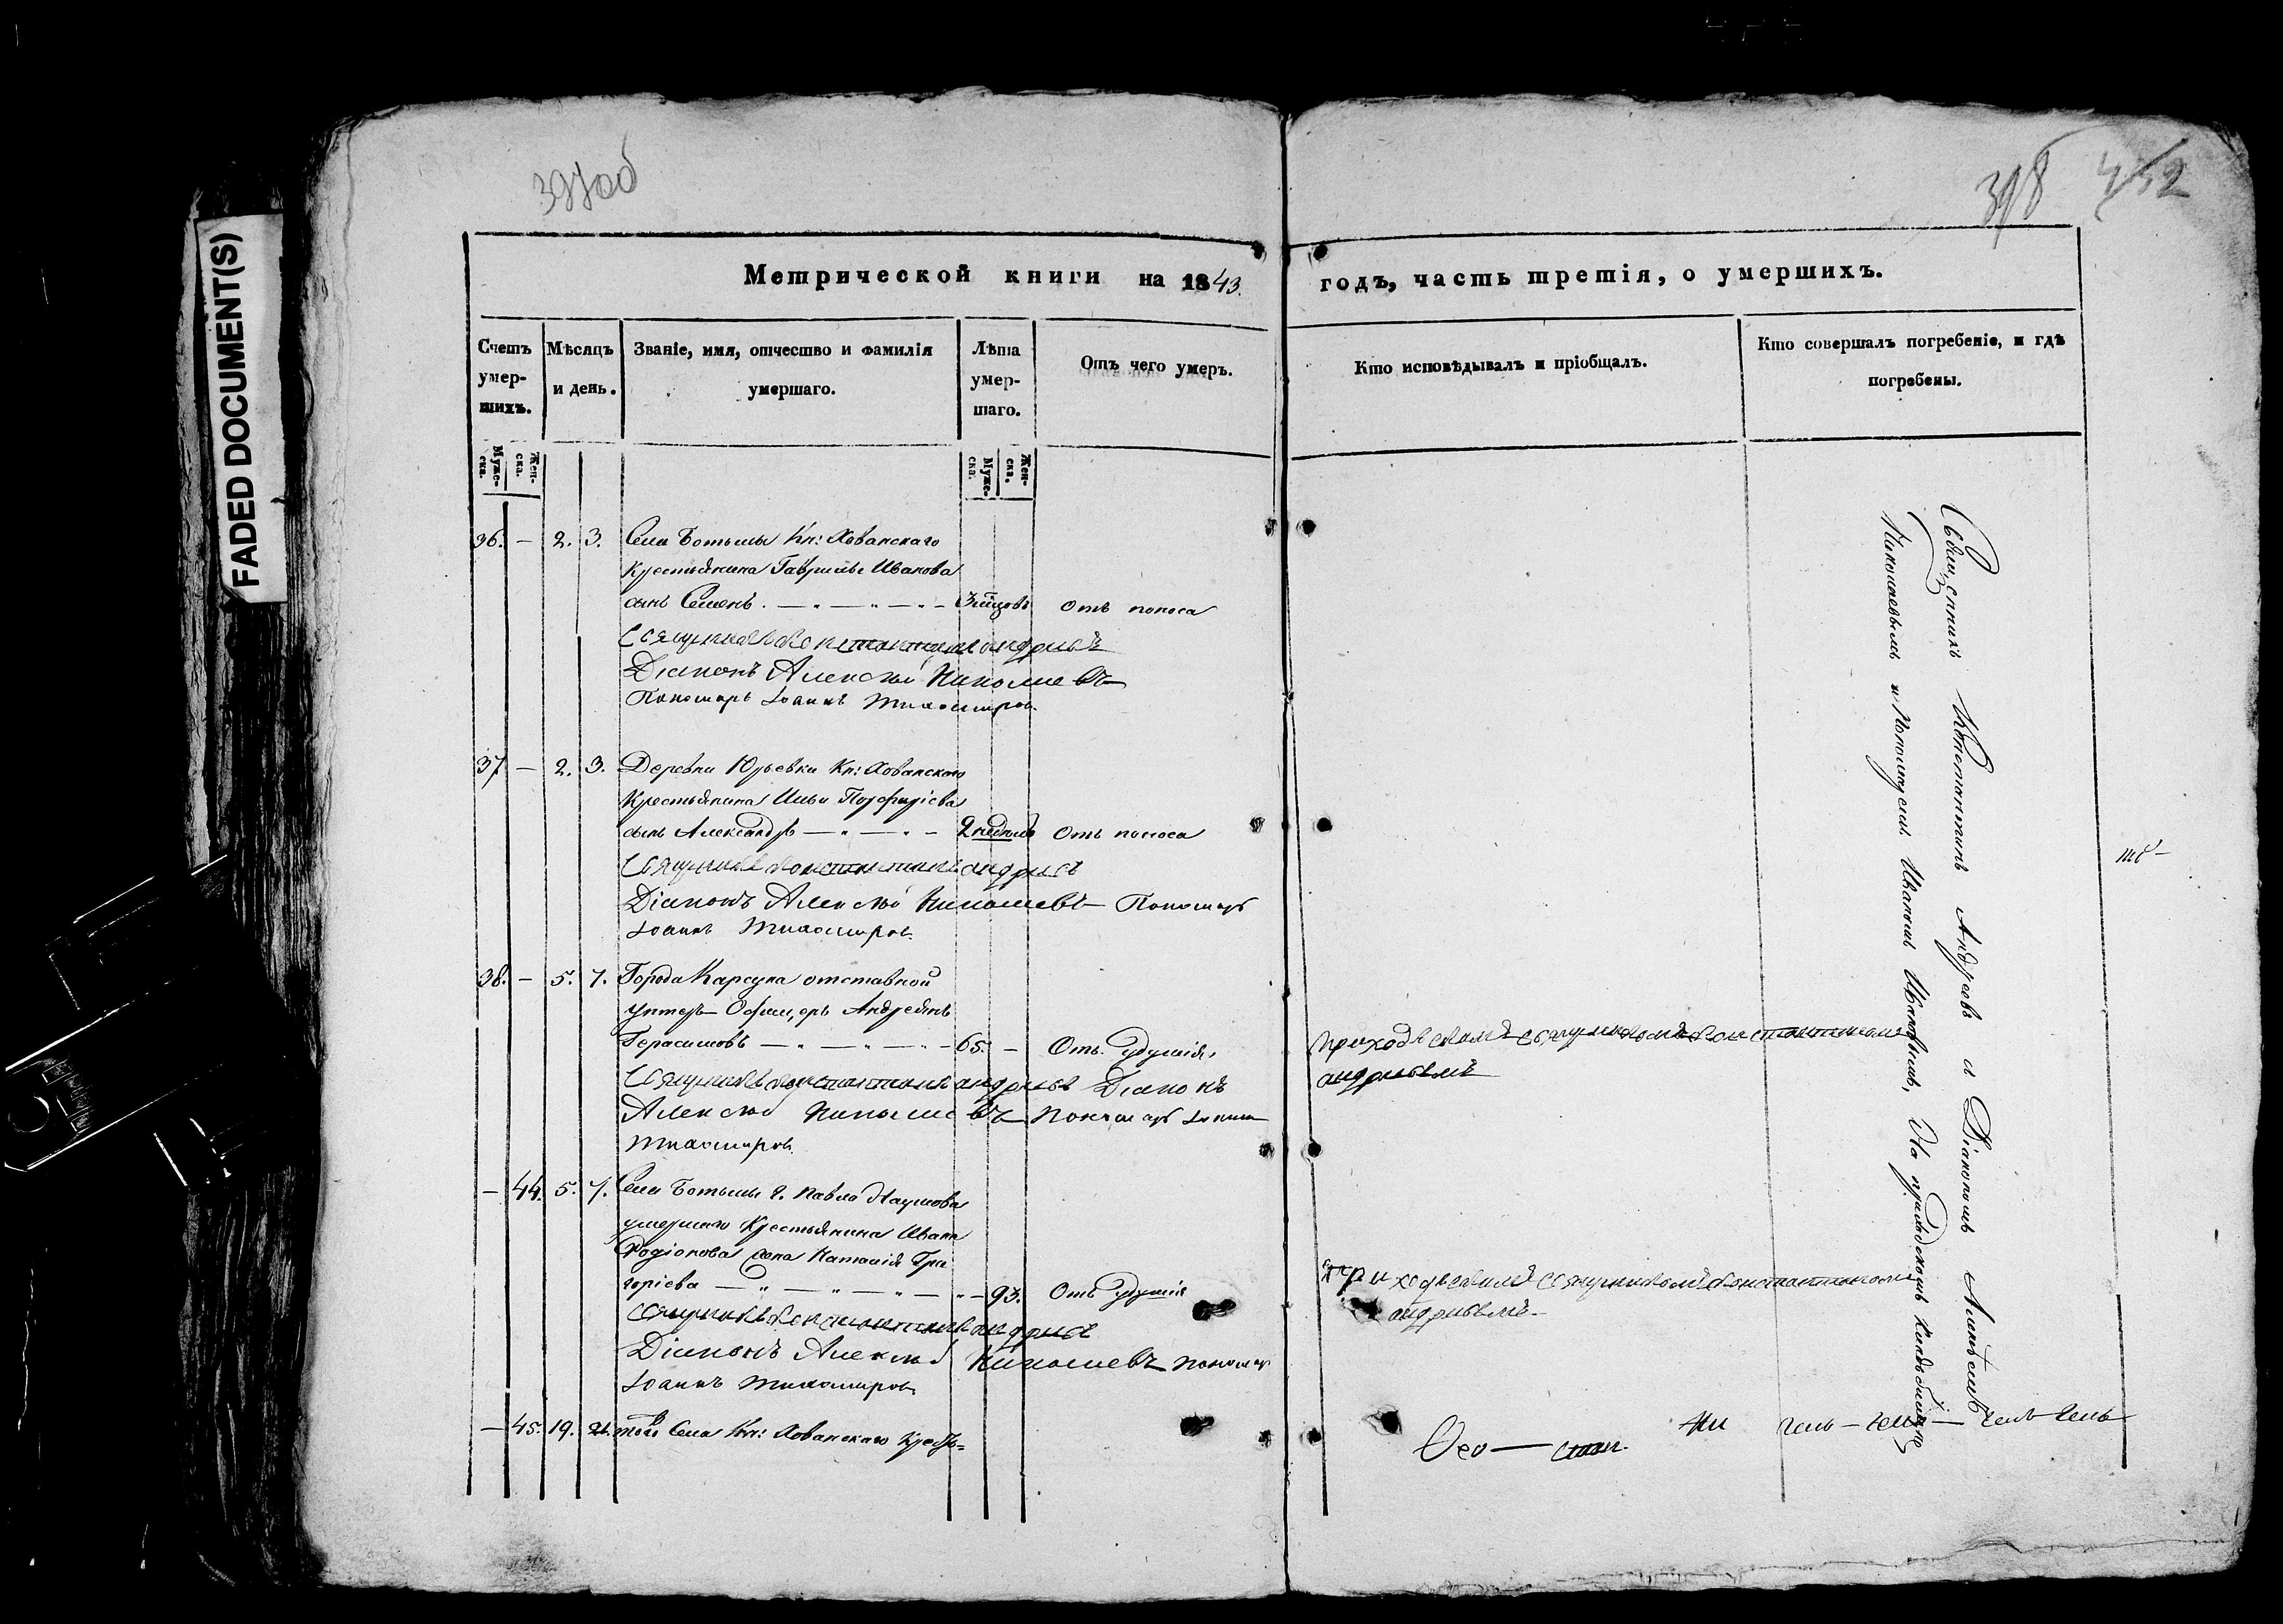 FADED DOCUMENT(S)
397 об
398
Метрической книги на 1843.
годъ, часть третія, о умершихъ.
Счетъ умер-шихъ.
Мѣсяцъ и день.
Званіе, имя, отчество и фамилія умершаго.
Лѣта умер-шаго.
Отъ чего умеръ.
Кто исповѣдывалъ и пріобщалъ.
Кто совершалъ погребеніе, и гдѣ погребены.
Муже-ска.
Жен-ска.
Муже-ска.
Жен-ска.
36. — 2. 3. Села Ботьмы Кн: Хованскаго
Крестьянина Гаврилы Иванова
сынъ Семенъ. Отъ поноса
Священникъ Константинъ Андреевъ
Діаконъ Алексѣй Николаевъ
Пономарь Іоаннъ Тихомировъ.
37 — 2. 3. Деревни Юрьевки Кн: Хованскаго
Крестьянина Ильи Порфиріева
сынъ Александръ 2 недѣль Отъ поноса
Священникъ Константинъ Андреевъ
Діаконъ Алексѣй Николаевъ Пономарь
Іоаннъ Тихомировъ.
38. — 5. 7. Города Карсуна отставной
Унтеръ-Офицеръ Андреянъ
Герасимовъ 65. — Отъ удушія.
Священникъ Константинъ Андреевъ Діаконъ
Алексѣй Николаевъ Пономарь Іоаннъ
Тихомировъ.
Приходскимъ священникомъ Константиномъ
Андреевымъ
— 44. 5. 7. Села Ботьмы г. Павла Наумова
умершаго Крестьянина Ивана
Родіонова жена Наталія Гри
горіева 93. Отъ удушія
Священникъ Константинъ Андреевъ
Діаконъ Алексѣй Николаевъ Пономарь
Іоаннъ Тихомировъ
Приходскимъ Священникомъ Константиномъ
Андреевымъ
— 45. 19. 21. того Села Кн: Хованскаго Кресть=
Священникъ Константинъ Андреевъ съ Діакономъ Алексѣемъ
Николаевымъ и Пономаремъ Иваномъ Ивановымъ, На приходскомъ кладбищѣ